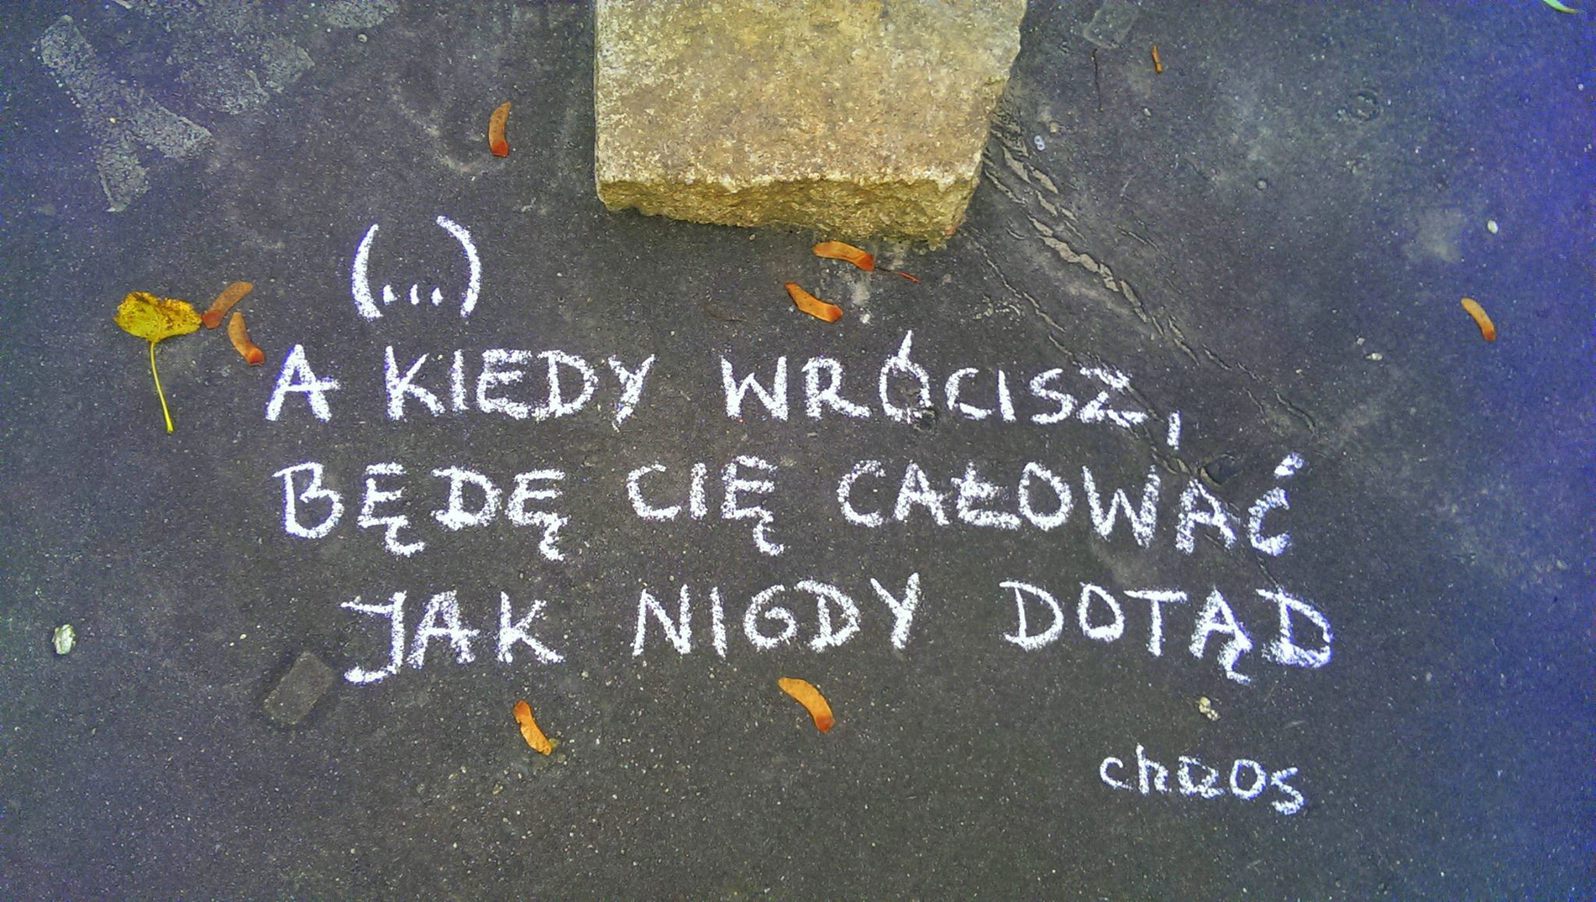 (...)
A KIEDY WRÓCISZ,
BĘDĘ CIĘ CAŁOWAĆ
JAK NIGDY DOTĄD
chaos